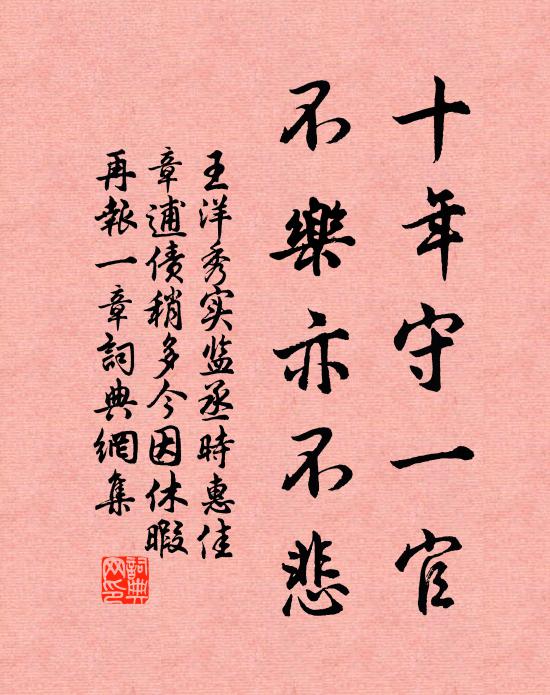 十年守一官
不樂亦不悲
王洋秀实监丞時惠佳
章逋债稍多今因休暇
再報一章詞典網集
詞典网印